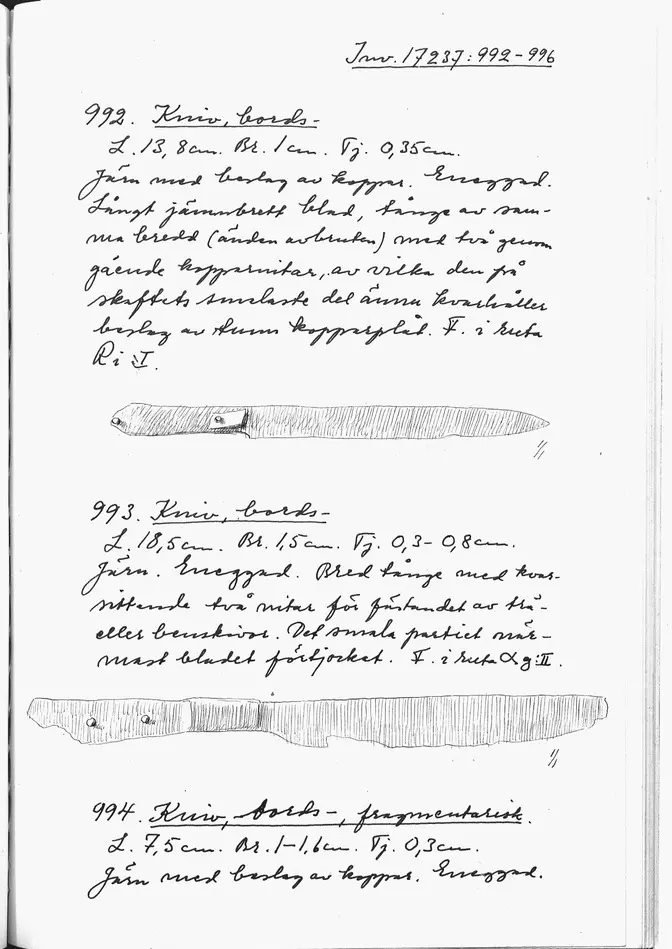 Inv. 17237:992-996
992. Kniv, bords-
L. 13,8cm. Br. 1cm. Tj. 0,35cm.
Järn med beslag av koppar. Eneggad.
Långt jämnbrett blad, tånge av sam-
ma bredd (änden avbruten) med två genom
gående kopparnitar, av vilka den på
skaftets smalaste del ännu kvarhåller
beslag av tunn kopparplåt. F. i ruta
R i :I.
1/1
993. Kniv, bords-
L. 18,5cm. Br. 1,5cm. Tj. 0,3-0,8cm.
Järn. Eneggad. Bred tånge med kvar-
sittande två nitar för fästandet av trä-
eller benskivor. Det smala partiet när-
mast bladet förtjockat. F. i ruta g:II.
1/1
994. Kniv, bords-, fragmentarisk.
L. 7,5cm. Br. 1-1,6cm. Tj. 0,3cm.
Järn med beslag av koppar. Eneggad.